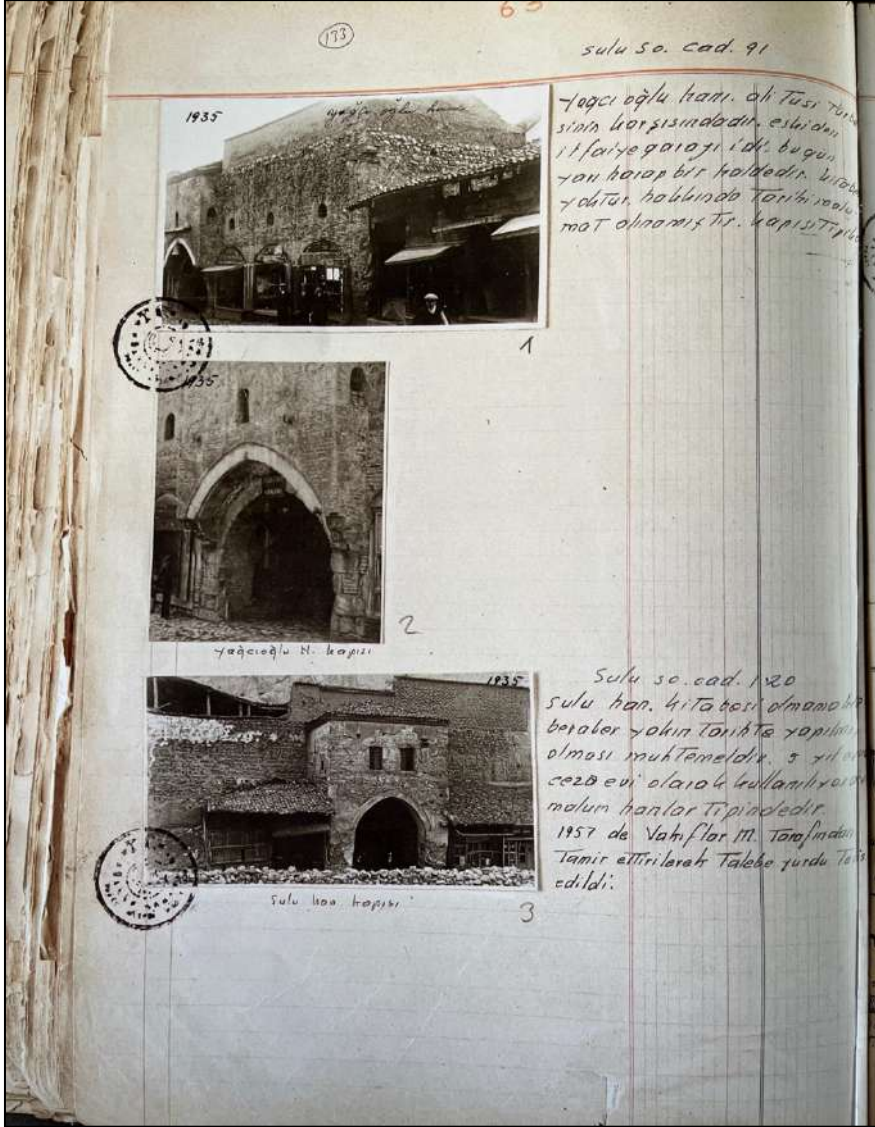 63
133
sulu so. cad. 91
1935
yağcı oğlu hanı
yağcı oğlu hanı. ali Tusi Türbe
sinin karşısındadır. eskiden
itfaiye garajı idi. bugün
yarı harap bir haldedir. kitabe
yoktur. hakkında Tarihi malu
mat alınamıştır. kapısı Tipik
1
1935
2
yağcıoğlu H. kapısı
1935
Sulu so. cad. 120
sulu han. kitabesi olmamakla
beraber yakın Tarihte yapılmış
olması muhtemeldir. 5 yıl
ceza evi olarak kullanılıyor
malum hanlar Tipindedir.
1957 de Vakıflar M. Tarafından
Tamir ettirilerek Talebe yurdu
edildi.
Sulu han kapısı
3